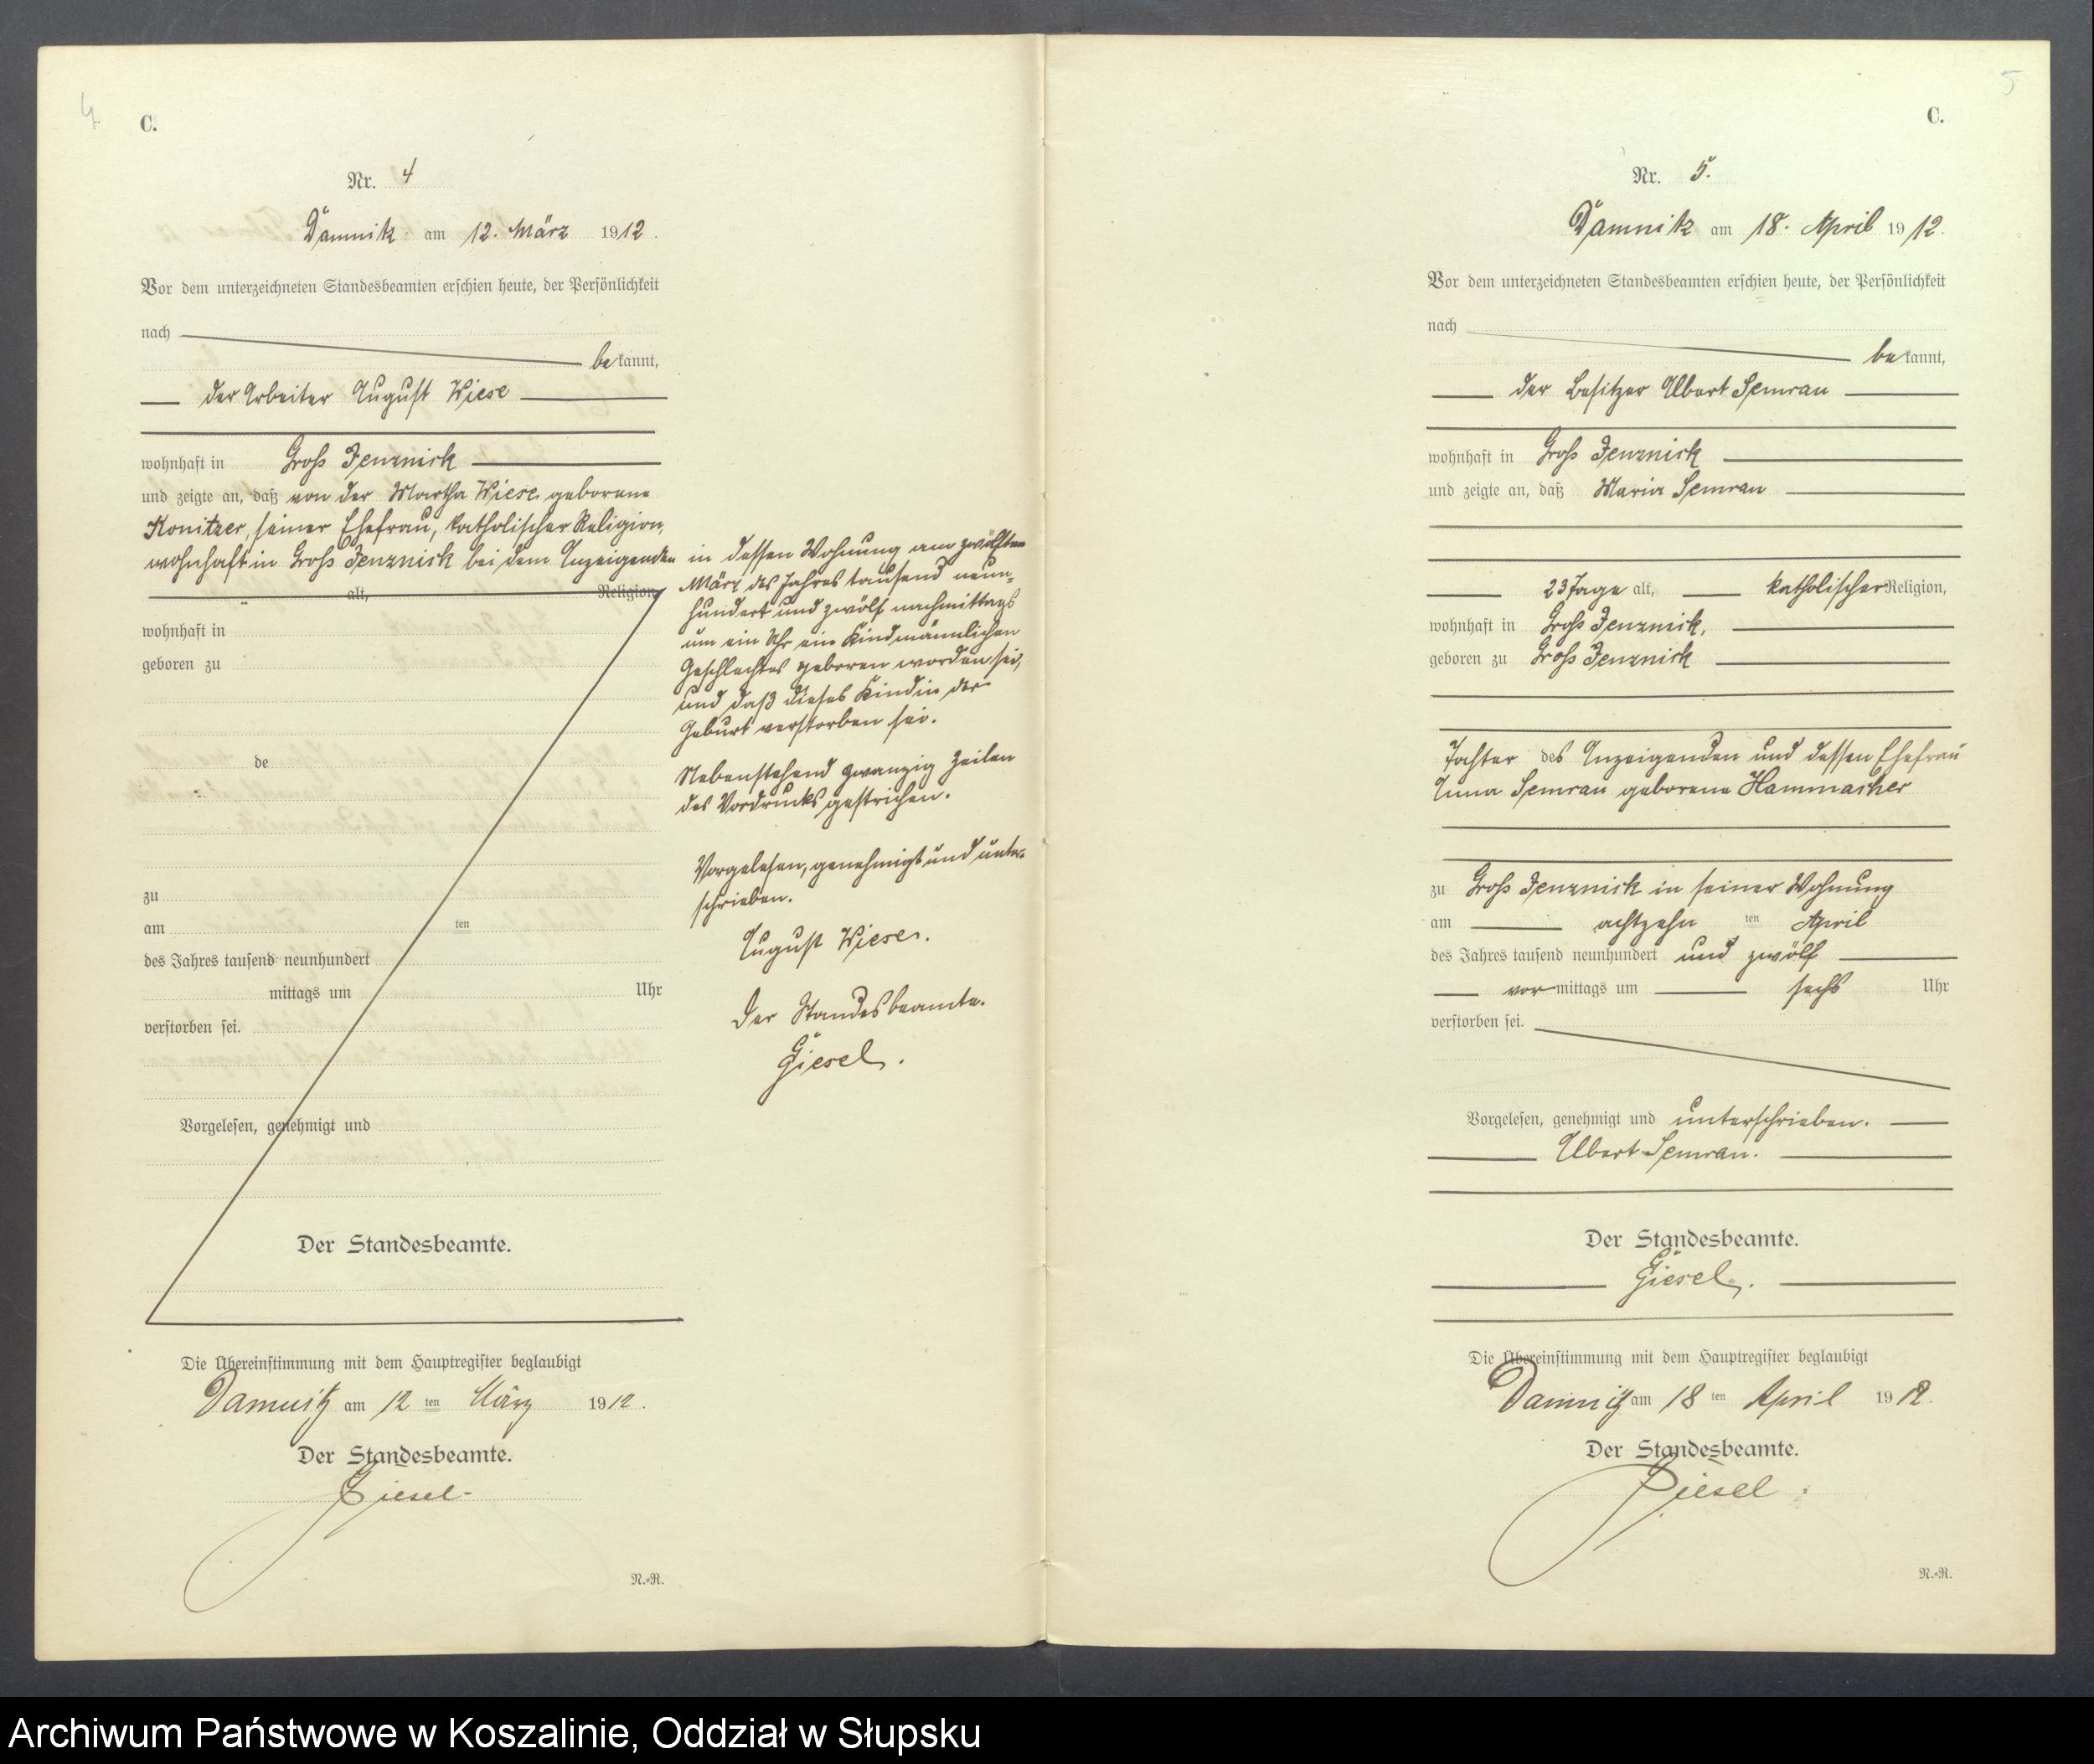 4
C.
Nr. 4
Damnitz am 12. März 1912.
Vor dem unterzeichneten Standesbeamten erschien heute, der Persönlichkeit
nach
bekannt,
der Arbeiter August Wiese
wohnhaft in Groß Jenznick
und zeigte an, daß von der Martha Wiese geborene
Konitzer, seiner Ehefrau, katholischer Religion,
wohnhaft in Groß Jenznick bei dem Anzeigenden
alt, Religion,
wohnhaft in
geboren zu
de
zu
am ten
des Jahres tausend neunhundert
mittags um Uhr
verstorben sei.
Vorgelesen, genehmigt und
Der Standesbeamte.
in dessen Wohnung am zwölften
März des Jahres tausend neun-
hundert und zwölf nachmittags
um ein Uhr ein Kind männlichen
Geschlechtes geboren worden sei,
und daß dieses Kind in der
Geburt verstorben sei.
Nebenstehend zwanzig Zeilen
des Vordrucks gestrichen.
Vorgelesen, genehmigt und unter-
schrieben.
August Wiese.
Der Standesbeamte.
Giesel.
Die Übereinstimmung mit dem Hauptregister beglaubigt
Damnitz am 12 ten März 1912.
Der Standesbeamte.
Giesel.
N.-R.
5
C.
Nr. 5.
Damnitz am 18. April 1912.
Vor dem unterzeichneten Standesbeamten erschien heute, der Persönlichkeit
nach
bekannt,
der Besitzer Albert Semrau
wohnhaft in Groß Jenznick
und zeigte an, daß Maria Semrau
23 Tage alt, katholischer Religion,
wohnhaft in Groß Jenznick,
geboren zu Groß Jenznick
Tochter des Anzeigenden und dessen Ehefrau
Anna Semrau geborene Hammacher
zu Groß Jenznick in seiner Wohnung
am achtzehn ten April
des Jahres tausend neunhundert und zwölf
vormittags um sechs Uhr
verstorben sei.
Vorgelesen, genehmigt und unterschrieben.
Albert Semrau.
Der Standesbeamte.
Giesel.
Die Übereinstimmung mit dem Hauptregister beglaubigt
Damnitz am 18 ten April 1912.
Der Standesbeamte.
Giesel.
N.-R.
Archiwum Państwowe w Koszalinie, Oddział w Słupsku